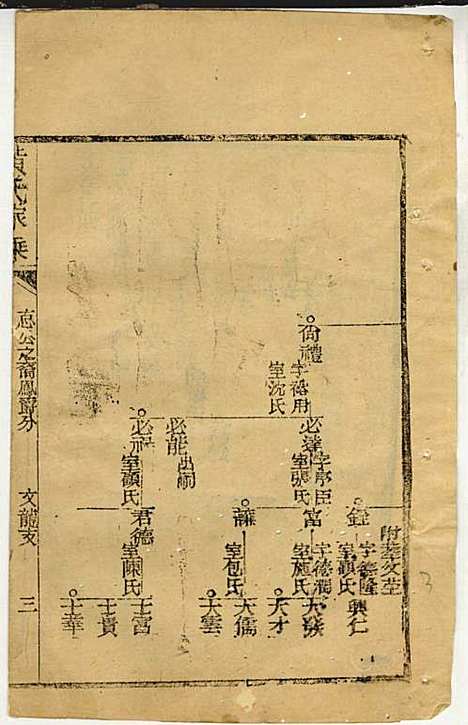 尙禮
字裕用
室沈氏
必達
字序臣
室張氏
必能
出嗣
必禄
室顧氏
附葬父塋
銓
字德隆
室顧氏
興仁
富
字德潤
室施氏
大發
大才
室包氏
大儒
大雲
君德
室陳氏
士富
士貴
士華
黃氏家乘
忠公之裔鳳爵分
文龍支
三
3